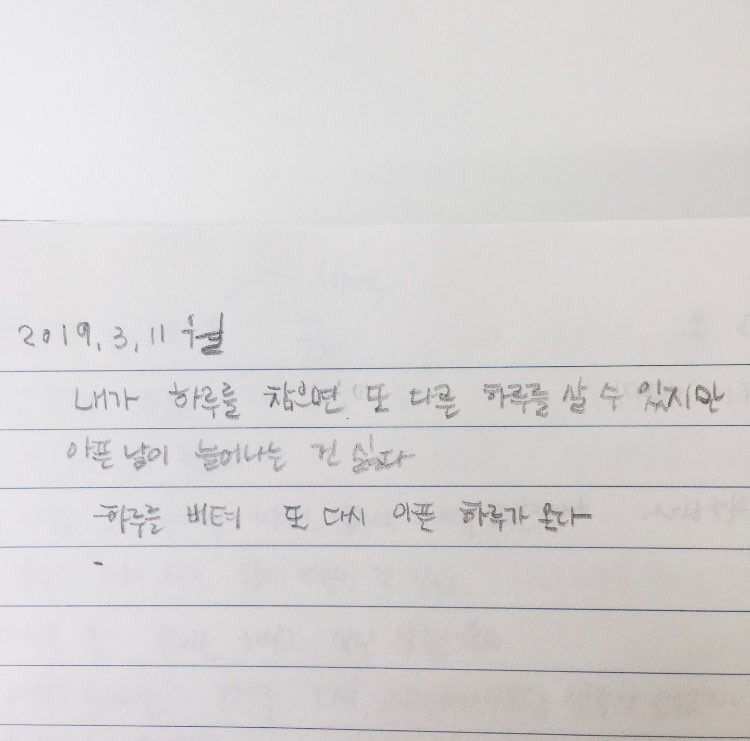 2019. 3. 11 월
내가 하루를 참으면 또 다른 하루를 살 수 있지만
아픈 날이 늘어나는 건 싫다
하루를 버텨 또 다시 아픈 하루가 온다